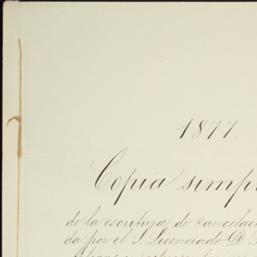 1877.
Copia simp
de la escritura de cancelac
da por el S. Licenciado D.